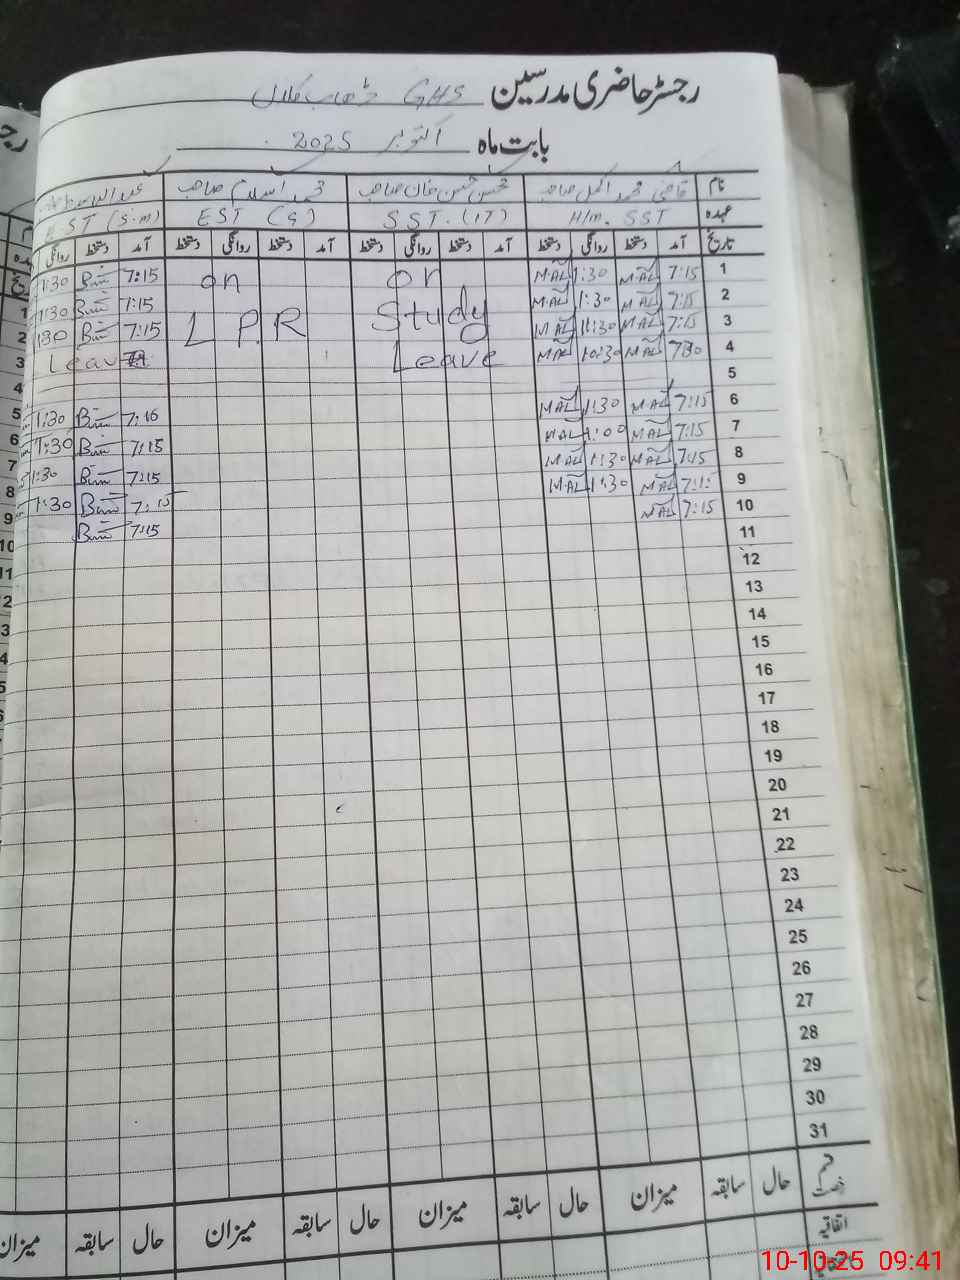 رجسٹر حاضری مدرسین GHS ڈھاب کلاں
بابت ماہ اکتوبر 2025
نام قاضی محمد اکمل صاحب محسن حسن خان صاحب محمد اسلام صاحب
عہدہ H/m. SST SST. (IT) EST (G) EST (S.m)
تاریخ آمد دستخط روانگی دستخط آمد دستخط روانگی دستخط آمد دستخط روانگی دستخط آمد دستخط روانگی
1 7:15 MAL 1:30 MAL on on 7:15 1:30
2 7:15 MAL 1:30 MAL Study 7:15 1:30
3 7:15 MAL 11:30 MAL L P.R 7:15 1:30
4 7:30 MAL 10:30 MAL Leave Leave
5
6 7:15 MAL 1:30 MAL 7:16 1:30
7 7:15 MAL 1:00 MAL 7:15 1:30
8 7:15 MAL 1:30 MAL 7:15 1:30
9 7:15 MAL 1:30 MAL 7:15 1:30
10 7:15 MAL 7:15
11
12
13
14
15
16
17
18
19
20
21
22
23
24
25
26
27
28
29
30
31
قسم رخصت حال سابقہ میزان حال سابقہ میزان حال سابقہ میزان حال سابقہ میزان
اتفاقیہ
10-10-25 09:41